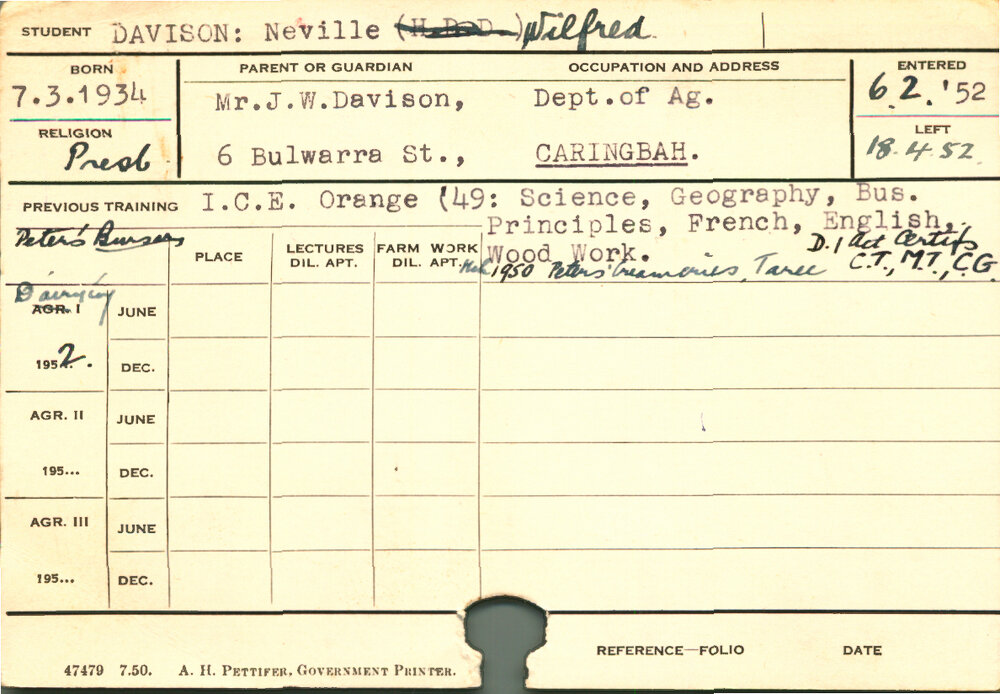 STUDENT DAVISON: Neville (H.D.D.) Wilfred
BORN PARENT OR GUARDIAN OCCUPATION AND ADDRESS ENTERED
7.3.1934 Mr.J.W.Davison, Dept.of Ag. 6.2.'52
RELIGION LEFT
Presb 6 Bulwarra St., CARINGBAH. 18.4.52
PREVIOUS TRAINING I.C.E. Orange ('49: Science, Geography, Bus.
Principles, French, English,
Wood Work. D.I Act Certifs
Peter's Bursers PLACE LECTURES DIL. APT. FARM WORK DIL. APT. 1950 Peters' Creameries, Taree C.T., M.T., C.G.
Dairying
AGR. I JUNE
1952. DEC.
AGR. II JUNE
195... DEC.
AGR. III JUNE
195... DEC.
REFERENCE—FOLIO DATE
47479 7.50. A. H. PETTIFER, GOVERNMENT PRINTER.